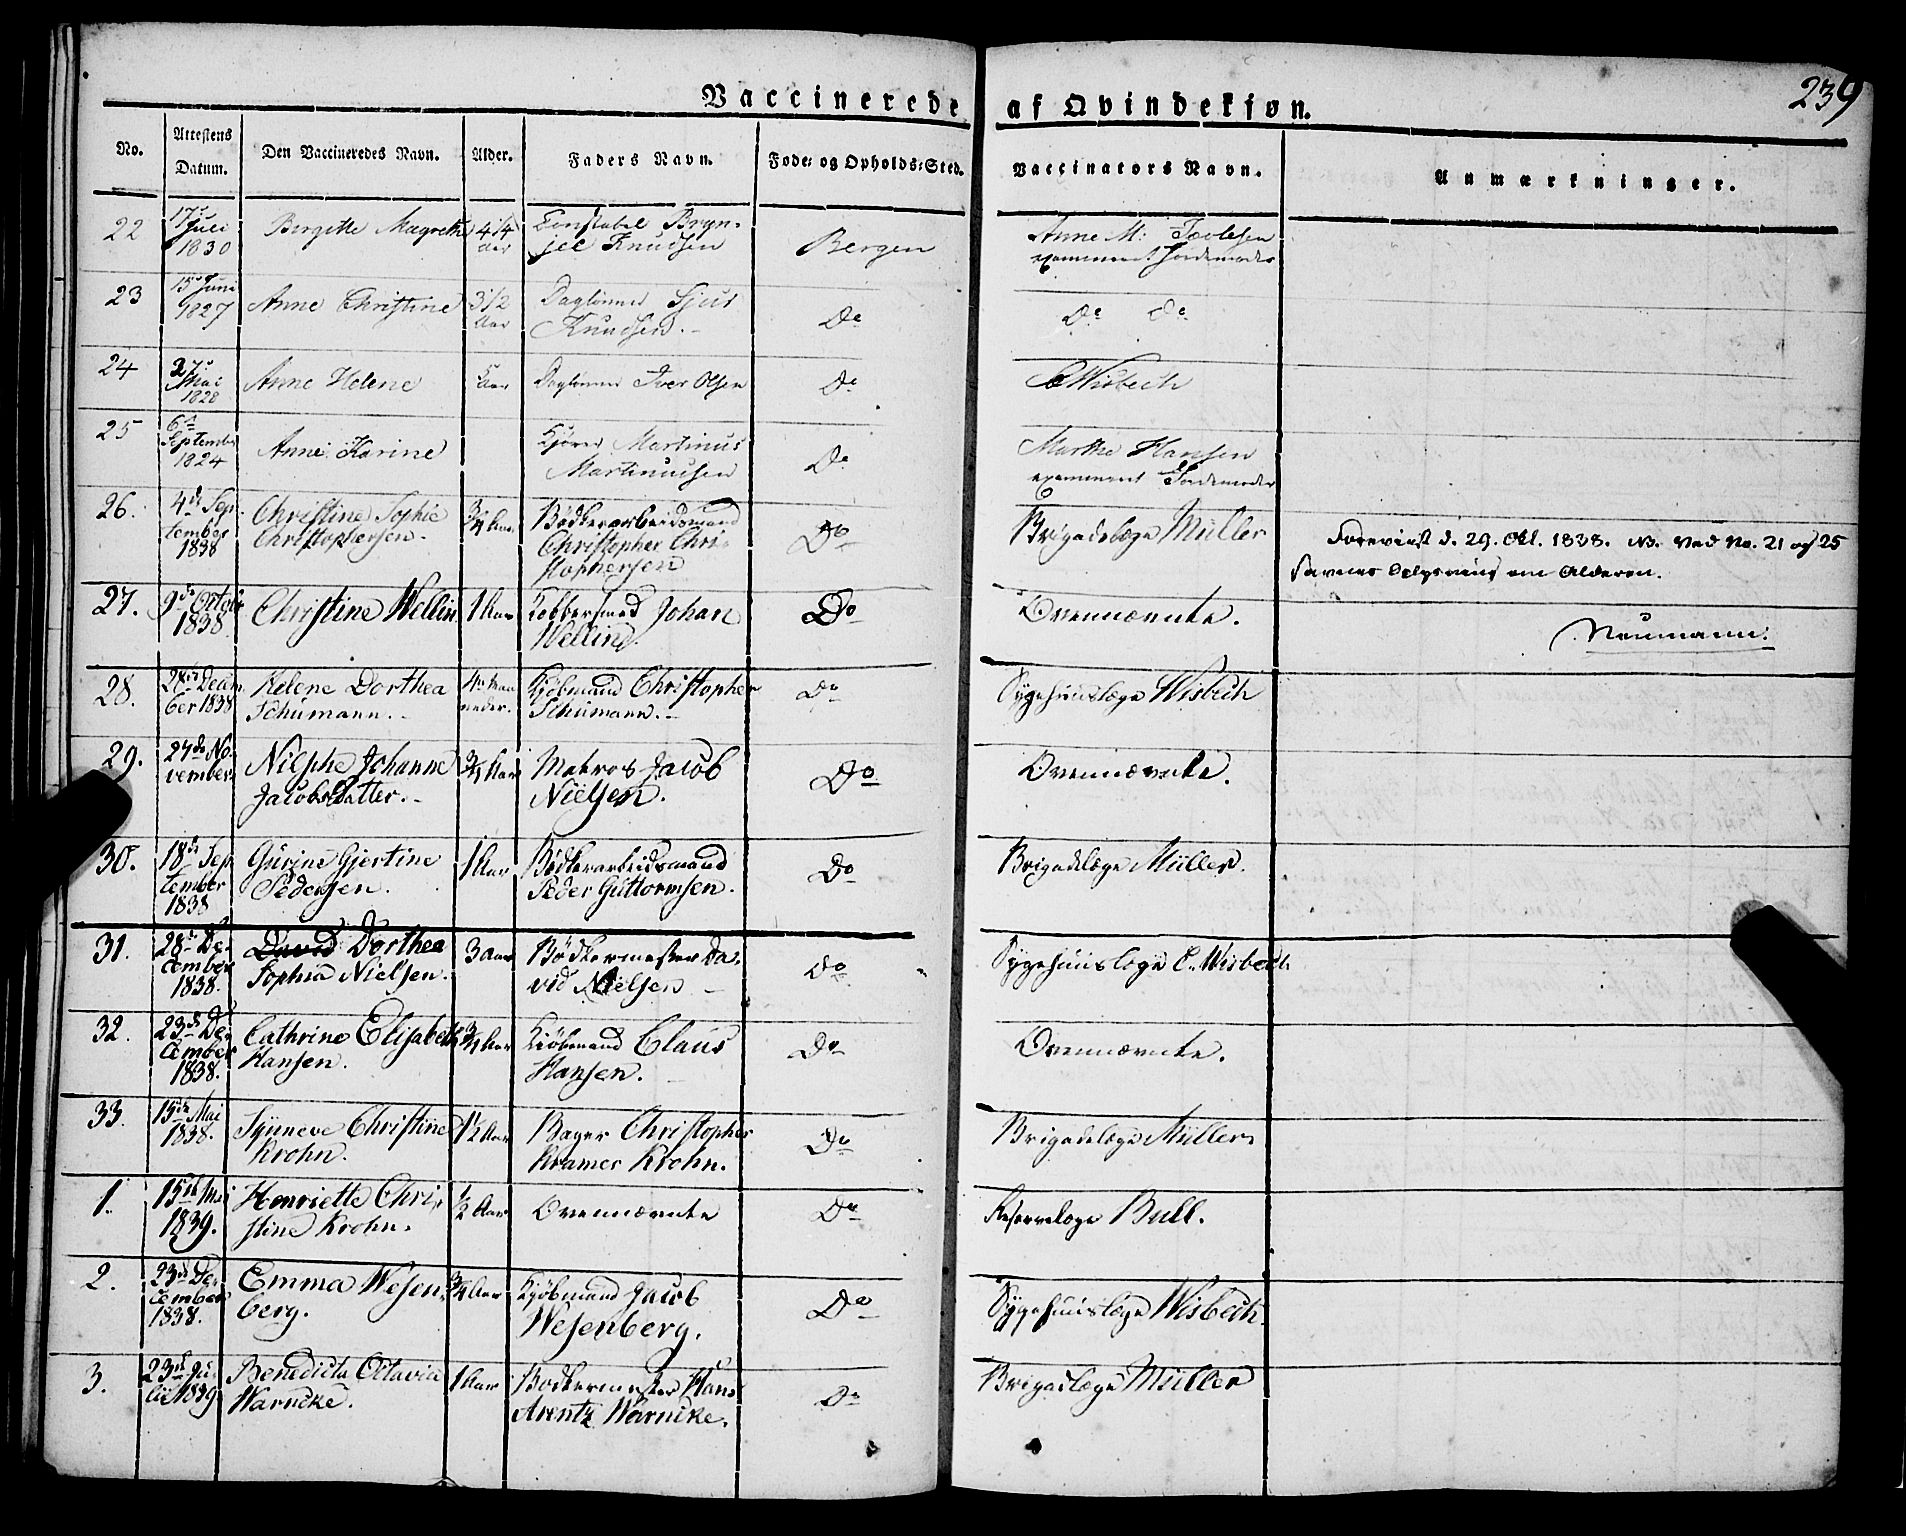 Vaccinerede af Qvindekjøn.
239
No. Attestens Datum. Den Vaccineredes Navn. Alder. Faders Navn. Føde- og Opholds-Sted. Vaccinators Navn. Anmærkninger.
22 17de Juli 1830 Birgitte Magrethe 4 1/4 Aar Constabel Bryn-
jel Knudsen Bergen Anne M:
examineret Jordemoder
23 15de Juni 1827 Anne Christine 3 1/2 Aar Daglønner Sjur
Knudsen. Do Do do
24 27de Mai 1828 Anne Helene Aar Daglønner Iver Olsen Do CWisbech
25 6te September 1824 Anne Karine Martinus
Martinussen Do Marthe Hansen
examineret Jordemoder
26. 4de September 1838 Christine Sophie
Christophersen. 3/4 Aar Bødkerarbeidsmand
Christopher Chri-
stophersen Do Brigadelæge Müller Foreviist d. 29. Okt. 1838. NB. Ved No. 21 og 25
savnes Oplysning om Alderen.
27. 9de Octobr 1838 Christine Wellin 1 Aar Kobbersmed Johan
Wellin. Do Ovennævnte. Neumann.
28. December 1838 Helene Dorthea
Schumann. 4 Maaneder. Kjøbmand Christopher
Schumann. Do Sygehuuslæge Wisbech
29. 27de November Johanne
Jacobsdatter. 3/4 Aar Matros Jacob
Nielsen. Do Ovennævnte.
30. 18de September 1838 Gurine Gjertine
Pedersen. 1 Aar Bødkerarbeidsmand
Peder Guttormsen. Do Brigadelæge Müller.
31. 28de December 1838. David Dorthea
Sophia Nielsen. 3 Aar Bødkermester Da-
vid Nielsen Do Sygehuuslæge C. Wisbech
32. 23de December 1838. Cathrine Elisabeth
Hansen. 3/4 Aar Kjøbmand Claus
Hansen. Do Ovennævnte.
33. 15de Mai 1838. Syneve Christine
Krohn. 1 1/2 Aar Bager Christopher
Kramer Krohn. Do Brigadelæge Müller
1. 15de Mai 1839. Henriette Chri-
stine Krohn. 1/2 Aar Ovennævnte Do Reservelæge Bull.
2. 23de December 1838. Emma Wesen-
berg. 3/4 Aar Kjøbmand Jacob
Wesenberg. Do Sygehuuslæge Wisbech.
3. 23de Julii 1839 Benedicta Octavia
Warncke. 1 Aar Bødkermester Hans
Arentz Warncke. Do Brigadelæge Müller